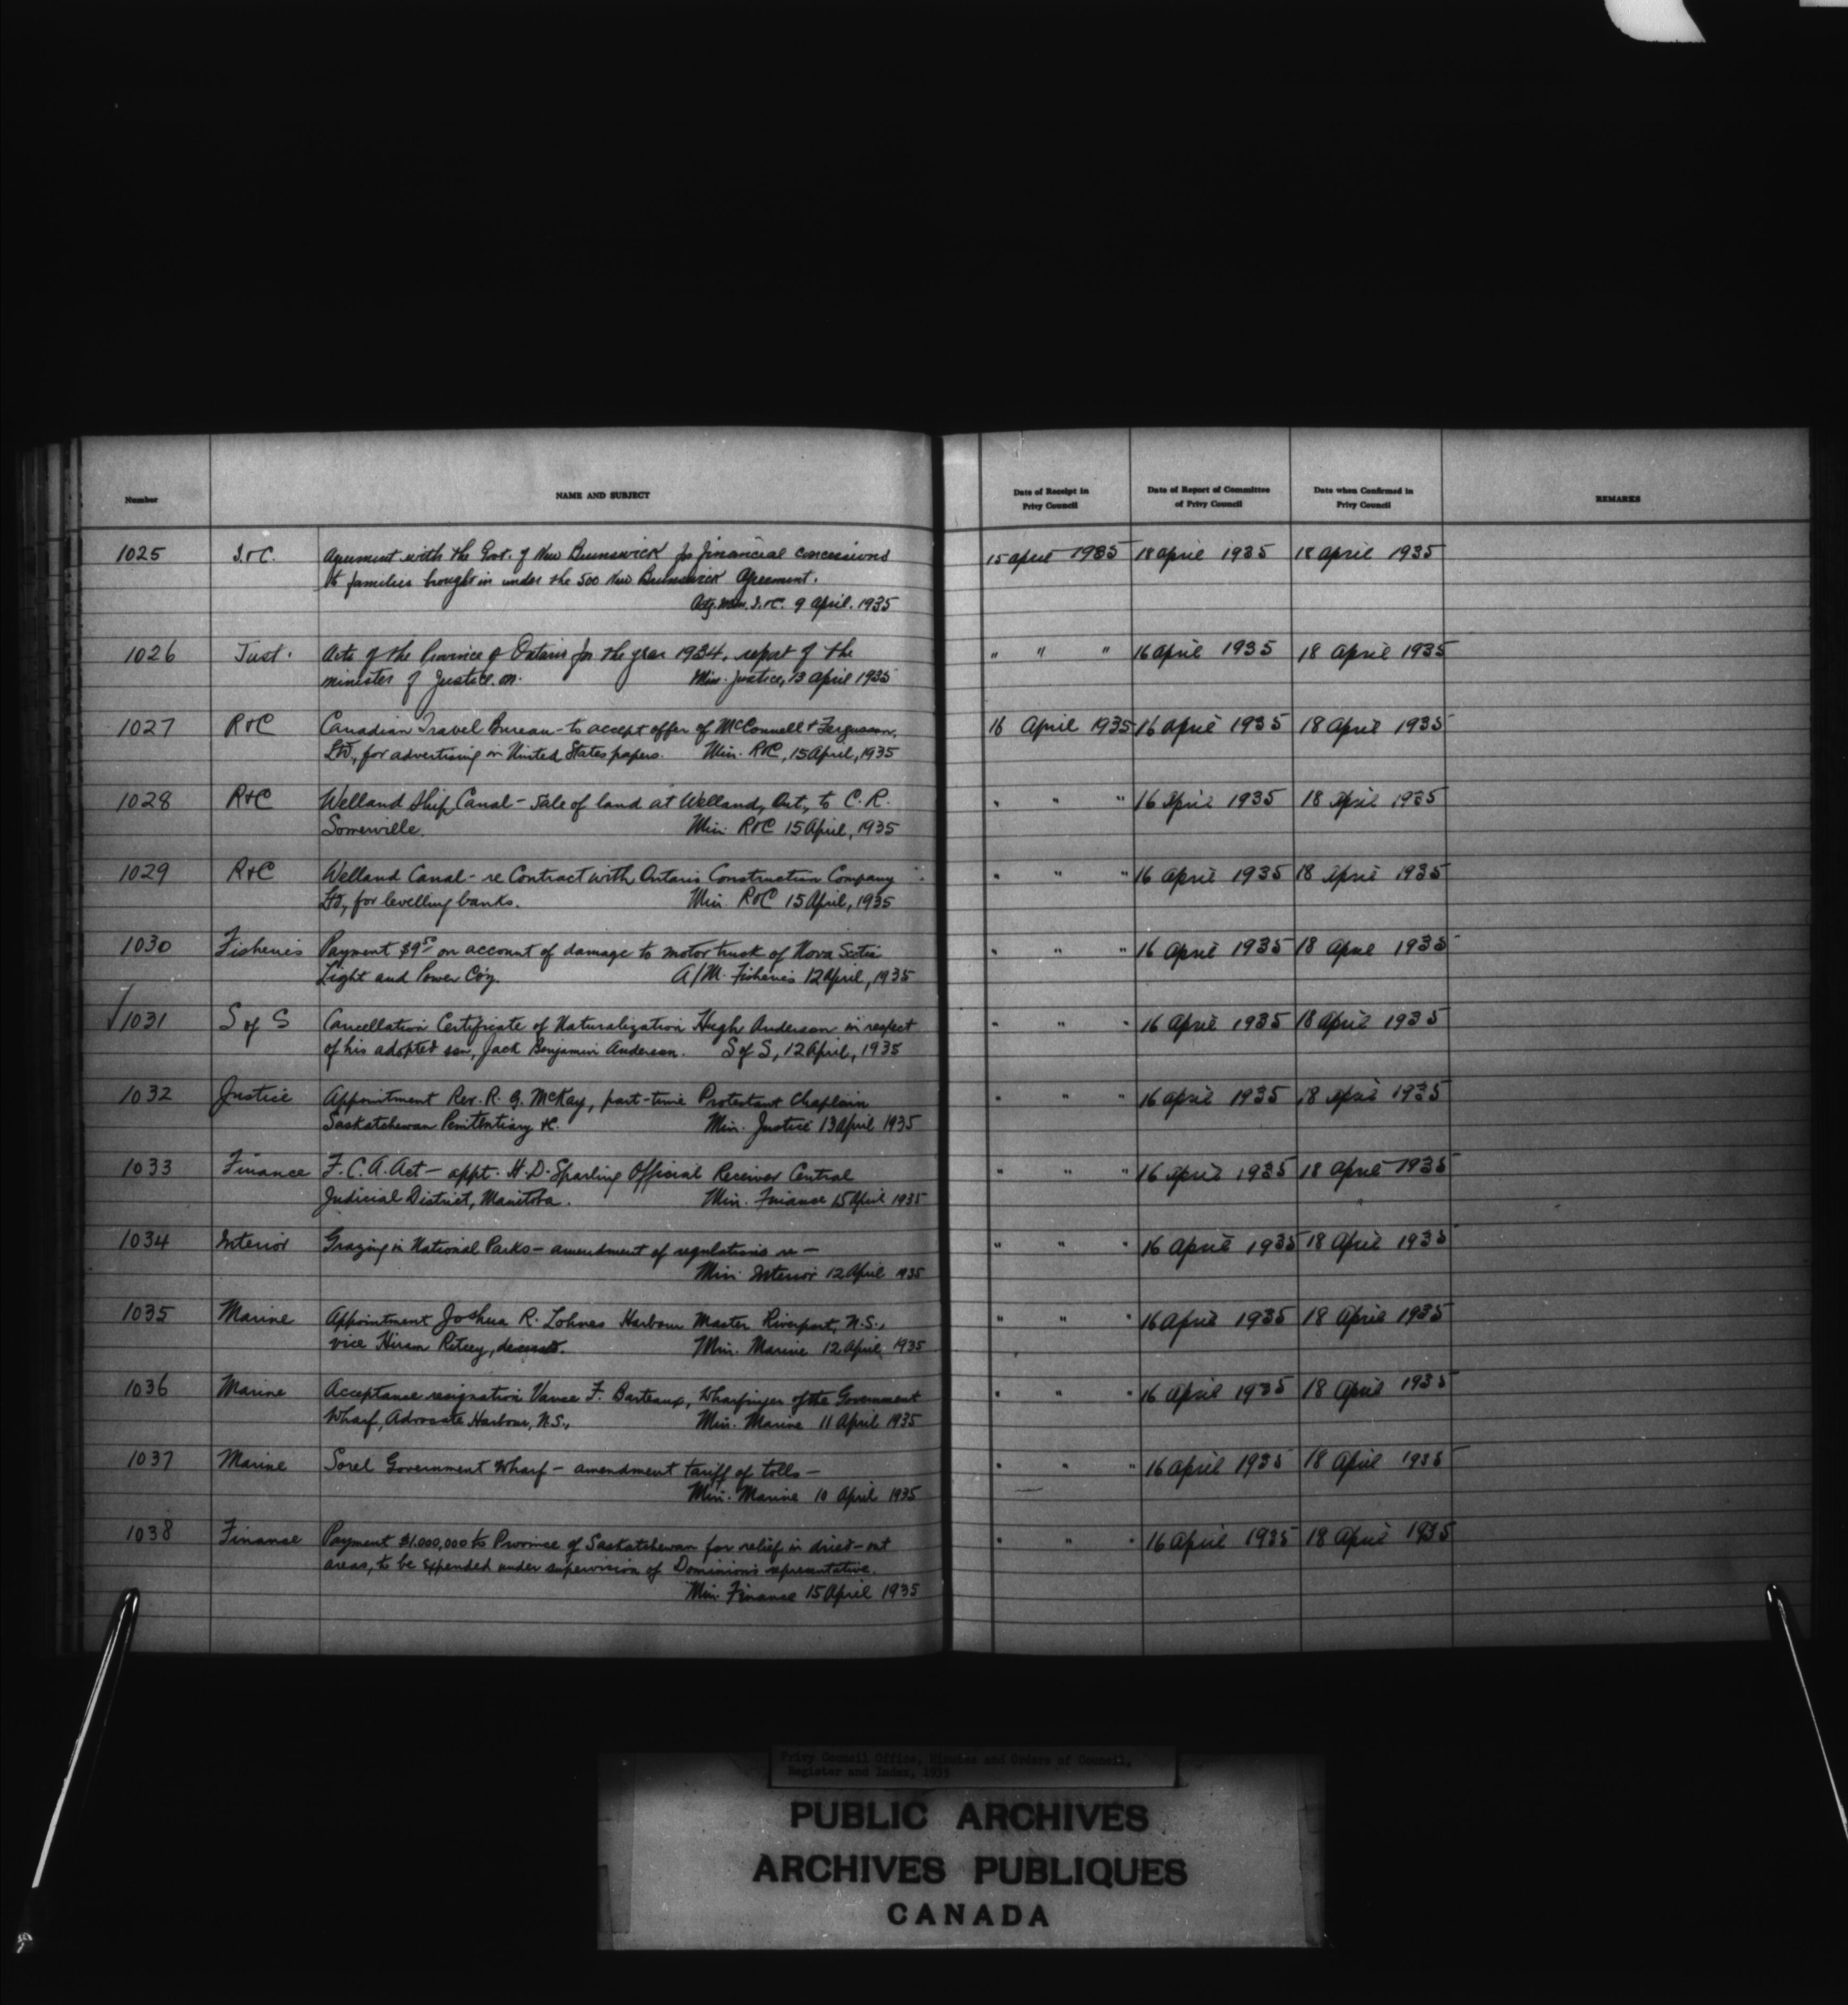 Number
NAME AND SUBJECT
Date of Receipt in
Privy Council
Date of Report of Committee
of Privy Council
Date when Confirmed in
Privy Council
REMARKS
1025 I. & C. Agreement with the Govt. of New Brunswick for financial concessions 15 April 1935 18 April 1935 18 April 1935
to families brought in under the 500 New Brunswick Agreement.
Actg. Min. I. & C. 9 April. 1935
1026 Just. Acts of the Province of Ontario for the year 1934, report of the " " " 16 April 1935 18 April 1935
minister of Justice on. Min. Justice, 13 April 1935
1027 R & C Canadian Travel Bureau - to accept offer of McConnell & Fergusson, 16 April 1935 16 April 1935 18 April 1935
Ltd, for advertising in United States papers. Min. R & C, 15 April, 1935
1028 R & C Welland Ship Canal - Sale of land at Welland, Ont, to C. R. " " " 16 April 1935 18 April 1935
Somerville. Min. R & C 15 April, 1935
1029 R & C Welland Canal - re Contract with Ontario Construction Company " " " 16 April 1935 18 April 1935
Ltd, for levelling banks. Min. R & C 15 April, 1935
1030 Fisheries Payment on account of damage to motor truck of Nova Scotia " " " 16 April 1935 18 April 1935
Light and Power Coy. A/M. Fisheries 12 April, 1935
√ 1031 S of S Cancellation Certificate of Naturalization Hugh Anderson in respect " " " 16 April 1935 18 April 1935
of his adopted son, Jack Benjamin Anderson. S of S, 12 April, 1935
1032 Justice Appointment Rev. R. G. McKay, part-time Protestant Chaplain " " " 16 April 1935 18 April 1935
Saskatchewan Penitentiary &c. Min. Justice 13 April 1935
1033 Finance F. C. A. Act - appt. H. D. Sparling Official Receiver Central " " " 16 April 1935 18 April 1935
Judicial District, Manitoba. Min. Finance 15 April 1935
1034 Interior Grazing in National Parks - amendment of regulations re - " " " 16 April 1935 18 April 1935
Min. Interior 12 April 1935
1035 Marine Appointment Joshua R. Lohnes Harbour Master Riverport, N.S., " " " 16 April 1935 18 April 1935
vice Hiram Ritcey, deceased. Min. Marine 12 April 1935
1036 Marine Acceptance resignation Vance F. Barteaux, Wharfinger of the Government " " " 16 April 1935 18 April 1935
Wharf, Advocate Harbour, N.S., Min. Marine 11 April 1935
1037 Marine Sorel Government Wharf - amendment tariff of tolls - " " " 16 April 1935 18 April 1935
Min. Marine 10 April 1935
1038 Finance Payment $1.000,000 to Province of Saskatchewan for relief in dried-out " " " 16 April 1935 18 April 1935
areas, to be expended under supervision of Dominion's representative.
Min. Finance 15 April 1935
Privy Council Office, Minutes and Orders of Council,
Register and Index, 1935
PUBLIC ARCHIVES
ARCHIVES PUBLIQUES
CANADA